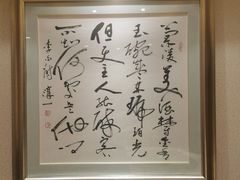 蘭陵美酒鬱金香
玉碗盛来琥珀光
但使主人能醉客
不知何处是他乡
李白诗 淳一